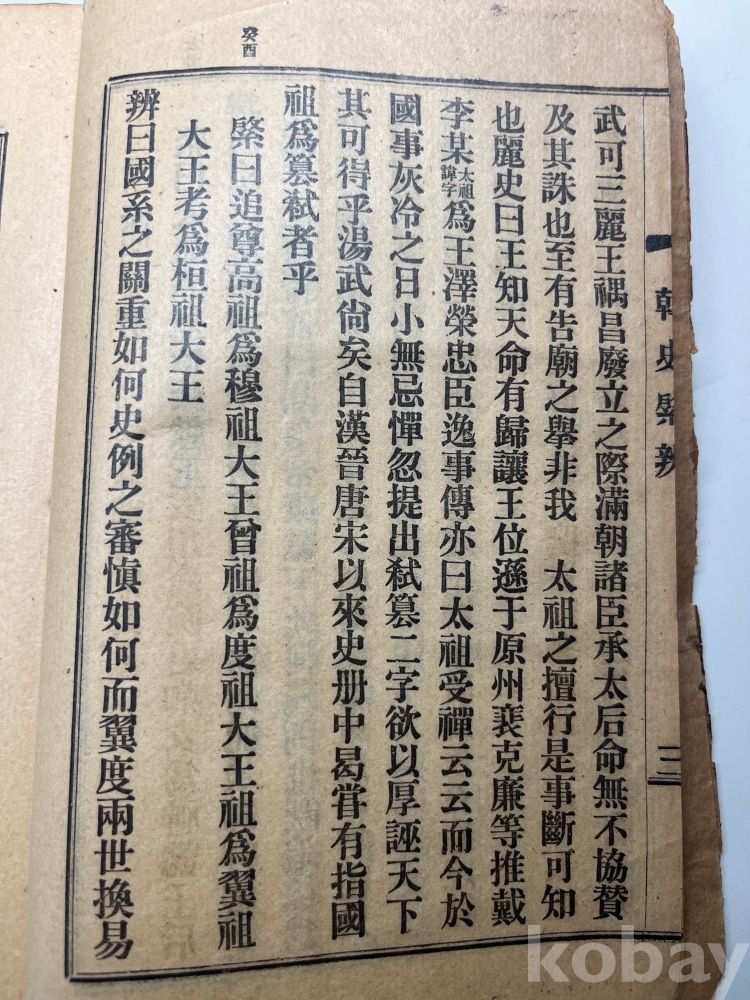 癸酉
韓史綮辨
三
武可三麗王禑昌廢立之際滿朝諸臣承太后命無不協贊
及其誅也至有告廟之舉非我　太祖之擅行是事斷可知
也麗史曰王知天命有歸讓王位遜于原州裵克廉等推戴
李某太祖諱字爲王澤榮忠臣逸事傳亦曰太祖受禪云云而今於
國事灰冷之日小無忌憚忽提出弑簒二字欲以厚誣天下
其可得乎湯武尙矣自漢晉唐宋以來史册中曷嘗有指國
祖爲簒弑者乎
綮曰追尊高祖爲穆祖大王曾祖爲度祖大王祖爲翼祖
大王考爲桓祖大王
辨曰國系之關重如何史例之審愼如何而翼度兩世換易
kobay